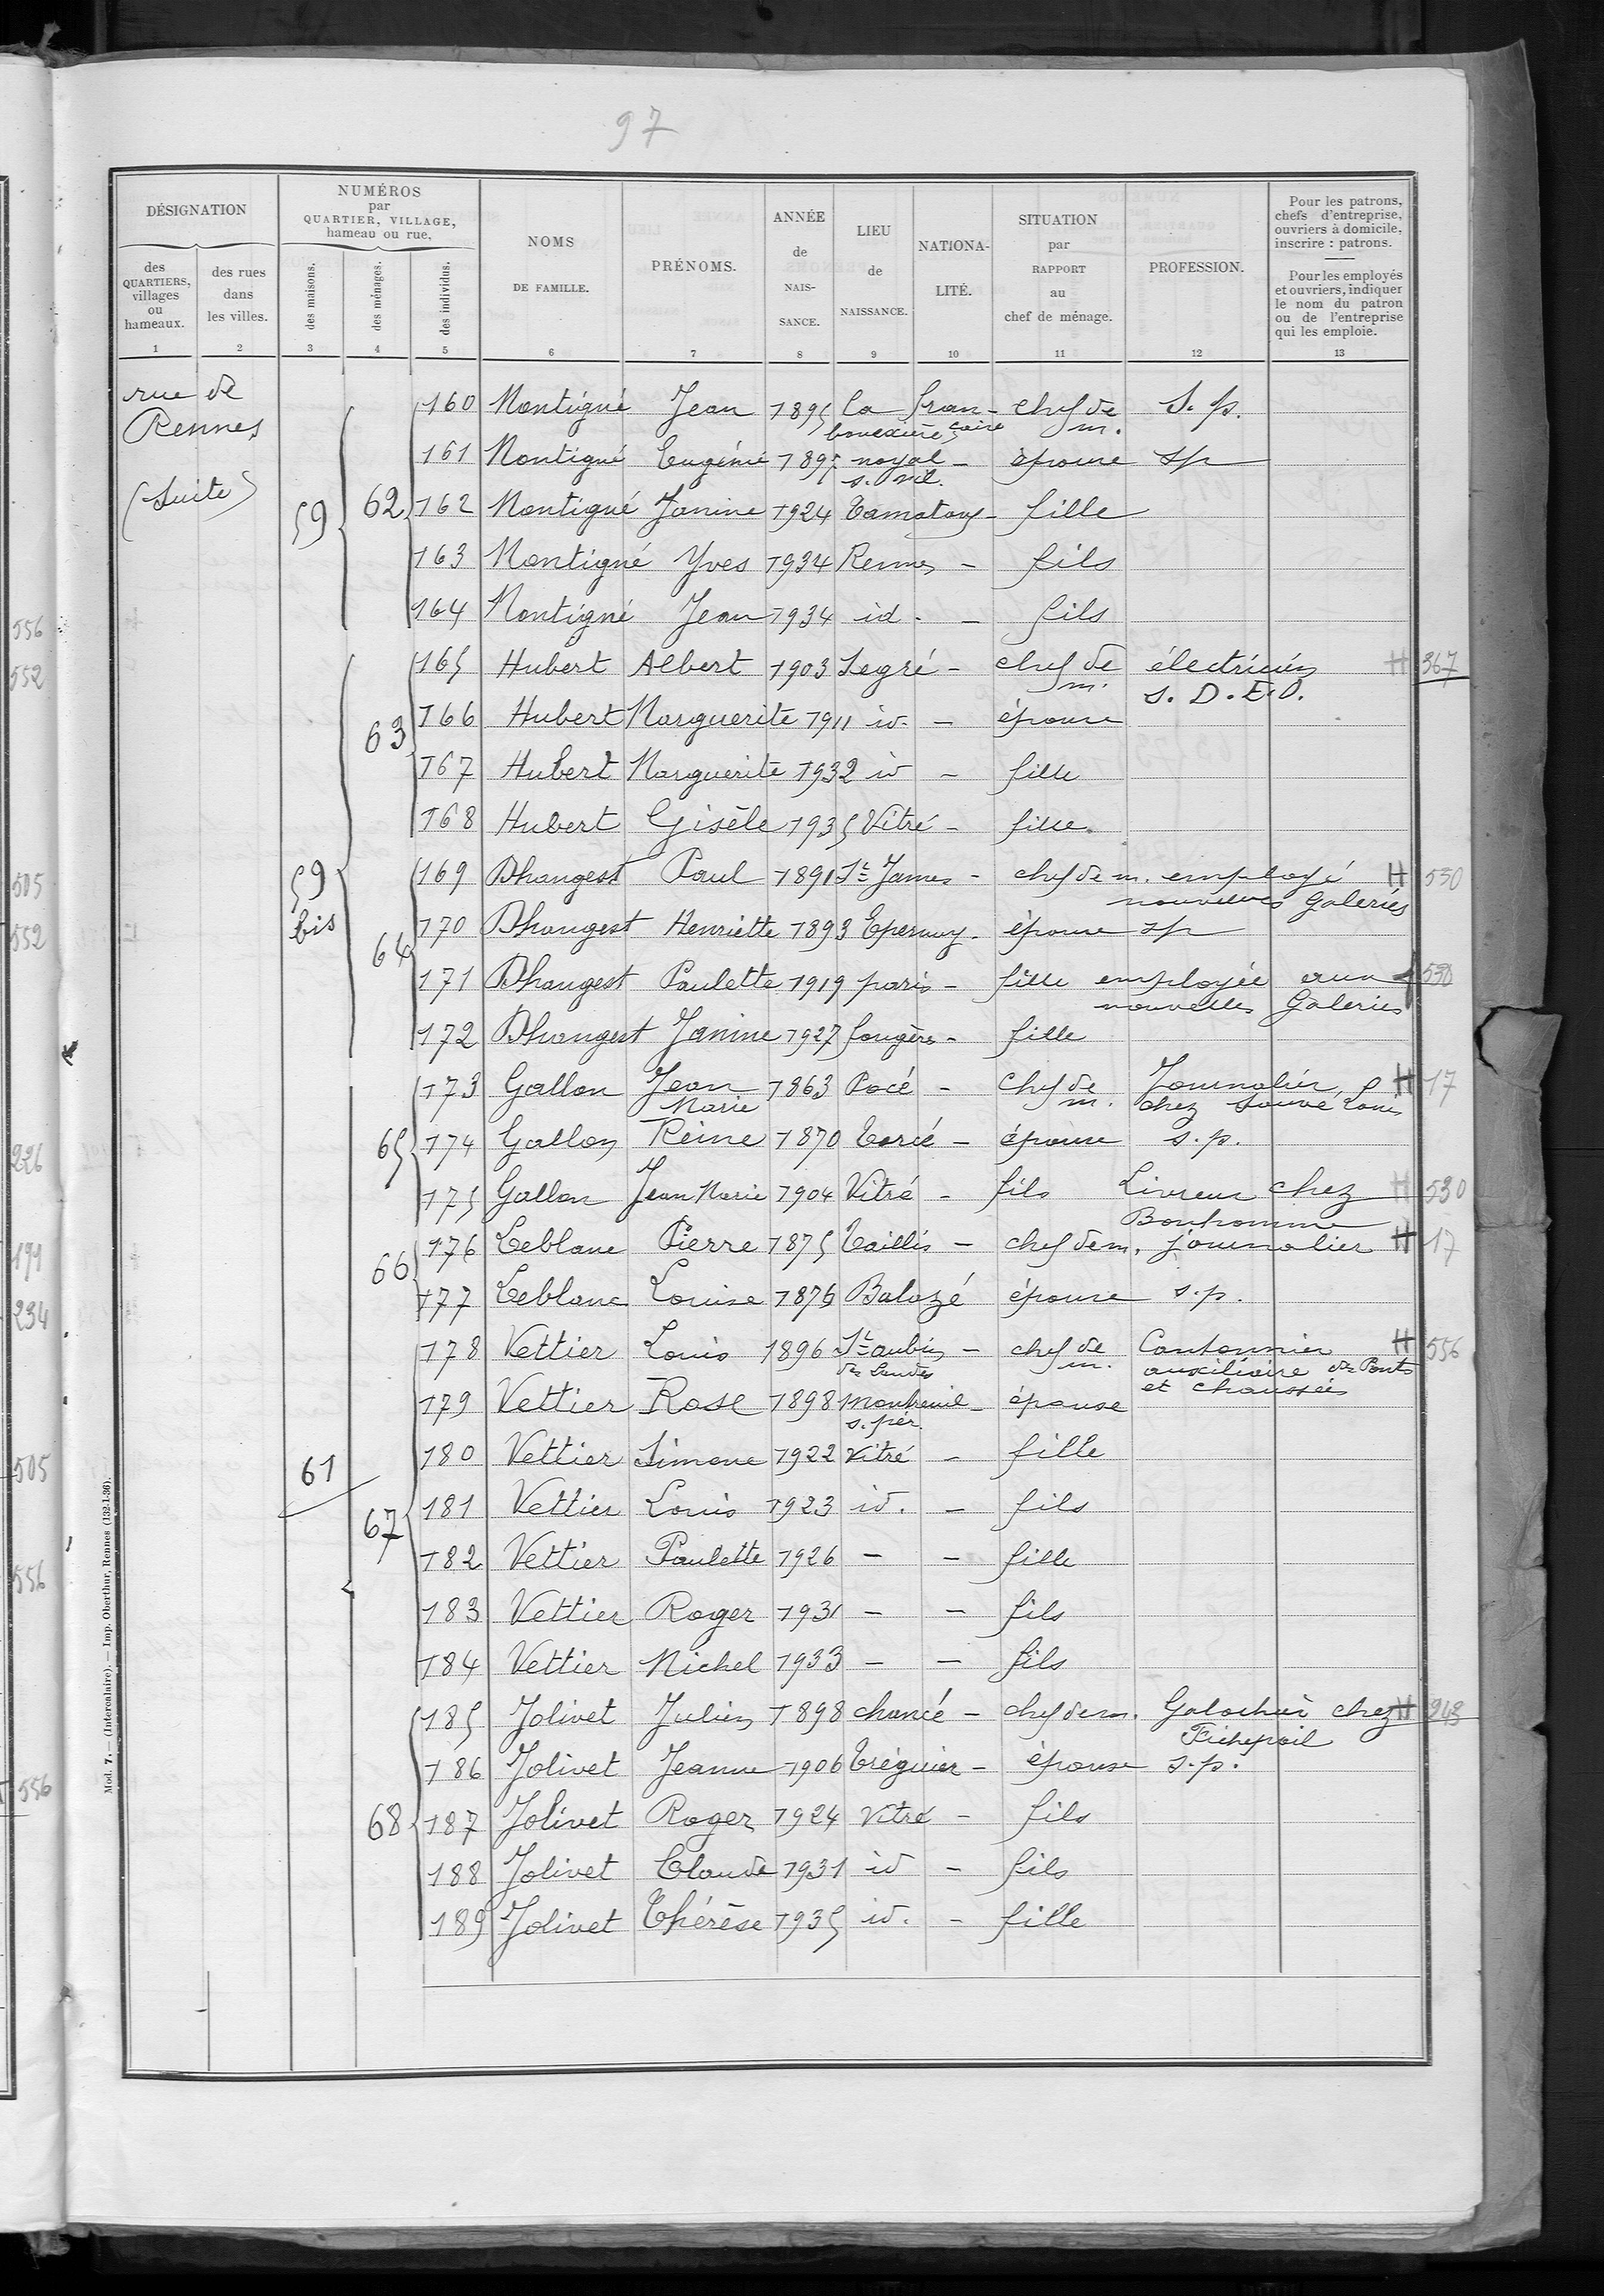 97
DÉSIGNATION
NUMÉROS
par
QUARTIER, VILLAGE,
hameau ou rue.
des
QUARTIERS,
villages
ou
hameaux.
des rues
dans
les villes.
des maisons.
des ménages.
des individus.
NOMS
DE FAMILLE.
PRÉNOMS.
ANNÉE
de
NAIS-
SANCE.
LIEU
de
NAISSANCE.
NATIONA-
LITÉ.
SITUATION
par
RAPPORT
au
chef de ménage.
PROFESSION.
Pour les patrons,
chefs d'entreprise,
ouvriers à domicile,
inscrire : patrons.
Pour les employés
et ouvriers, indiquer
le nom du patron
ou de l'entreprise
qui les emploie.
1 2 3 4 5 6 7 8 9 10 11 12 13
rue de
Rennes
(suite)
59
62
160 Montigné Jean 1895 la bouexière française chef de m. S. p.
161 Montigné Eugénie 1895 noyal s. vil. - épouse sp
162 Montigné Janine 1924 Tamatave - fille
163 Montigné Yves 1934 Rennes - fils
164 Montigné Jean 1934 id. - fils
59 bis
63
165 Hubert Albert 1903 Segré - chef de m. électricien H 367
S. D. E. O.
166 Hubert Marguerite 1911 id. - épouse
167 Hubert Marguerite 1932 id - fille
168 Hubert Gisèle 1935 Vitré - fille
64
169 Dhangest Paul 1891 St James - chef de m. employé H 530
nouvelles Galeries
170 Dhangest Henriette 1893 Epernay - épouse sp
171 Dhangest Paulette 1919 paris - fille employée aux 530
nouvelles Galeries
172 Dhangest Janine 1927 fougères - fille
61
65
173 Gallon Jean Marie 1863 Pocé - chef de m. Journalier H 17
chez Sauvé Louis
174 Gallon Reine 1870 Torcé - épouse s.p.
175 Gallon Jean Marie 1904 Vitré - fils Livreur chez H 530
Bonhomme
66
176 Leblanc Pierre 1875 Taillis - chef de m. journalier H 17
177 Leblanc Louise 1876 Balazé épouse s.p.
67
178 Vettier Louis 1896 St aubin des Landes - chef de m. Cantonnier H 556
auxiliaire des Ponts
et chaussées
179 Vettier Rose 1898 Montreuil s. pér. - épouse
180 Vettier Simone 1922 Vitré - fille
181 Vettier Louis 1923 id. - fils
182 Vettier Paulette 1926 - - fille
183 Vettier Roger 1931 - - fils
184 Vettier Michel 1933 - - fils
68
185 Jolivet Julien 1898 chancé - chef de m. Galochier chez H 243
Fichepoil
186 Jolivet Jeanne 1906 Tréguier - épouse s.p.
187 Jolivet Roger 1924 Vitré - fils
188 Jolivet Claude 1931 id - fils
189 Jolivet Thérèse 1935 id. - fille
Mod. 7. — (Intercalaire). — Imp. Oberthur, Rennes (132-1-36).
556
552
505
552
226
191
234
505
556
556